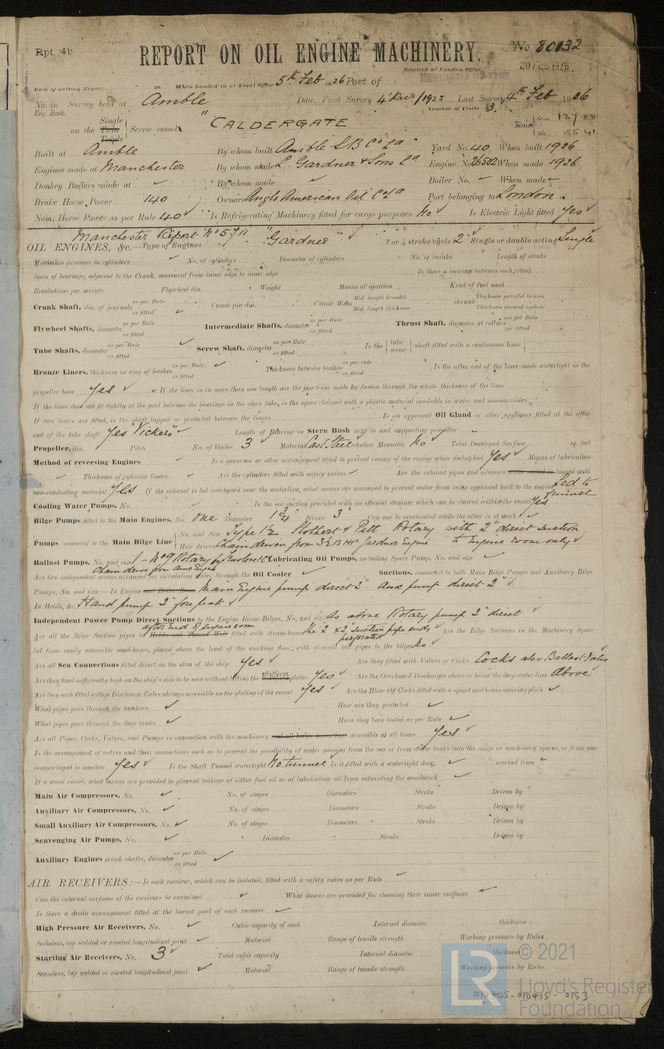 Rpt. 4b
REPORT ON OIL ENGINE MACHINERY.
No 80132
Received at London Office
20 FEB 1926
Date of writing Report When handed in at Local Office 5th Feb 26 Port of NEWCASTLE-ON-TYNE
No. in Survey held at Amble Date, First Survey 4 Decr/1925 Last Survey 4th Feb 1926
Reg. Book. Number of Visits 3.
on the Single Twin Triple Screw vessel "CALDERGATE" Tons
Built at Amble By whom built Amble S.B. Co Ld Yard No. 40 When built 1926
Engines made at Manchester By whom made L. Gardner & Sons Ld Engine No. 26502 When made 1926
Donkey Boilers made at By whom made Boiler No. When made
Brake Horse Power 140 Owners Anglo American Oil Co Ld Port belonging to London.
Nom. Horse Power as per Rule 40 Is Refrigerating Machinery fitted for cargo purposes No Is Electric Light fitted Yes
Manchester Report No 5711
OIL ENGINES, &c. Type of Engines "Gardner" 2 or 4 stroke cycle 2 Single or double acting Single
Maximum pressure in cylinders No. of cylinders Diameter of cylinders No. of cranks Length of stroke
Span of bearings, adjacent to the Crank, measured from inner edge to inner edge Is there a bearing between each crank
Revolutions per minute Flywheel dia. Weight Means of ignition Kind of fuel used
Crank Shaft, dia. of journals as per Rule as fitted Crank pin dia. Crank Webs Mid. length breadth Mid. length thickness shrunk Thickness parallel to axis Thickness around eyeholes
Flywheel Shafts, diameter as per Rule as fitted Intermediate Shafts, diameter as per Rule as fitted Thrust Shaft, diameter at collars as per Rule as fitted
Tube Shafts, diameter as per Rule as fitted Screw Shaft, diameter as per Rule as fitted Is the tube screw shaft fitted with a continuous liner
Bronze Liners, thickness in way of bushes as per Rule as fitted Thickness between bushes as per rule as fitted Is the after end of the liner made watertight in the
propeller boss Yes If the liner is in more than one length are the junctions made by fusion through the whole thickness of the liner
If the liner does not fit tightly at the part between the bearings in the stern tube, is the space charged with a plastic material insoluble in water and non-corrosive
If two liners are fitted, is the shaft lapped or protected between the liners Is an approved Oil Gland or other appliance fitted at the after
end of the tube shaft Yes "Vickers" Length of Bearing in Stern Bush next to and supporting propeller
Propeller, dia. Pitch No. of blades 3 Material Cast steel whether Moveable No Total Developed Surface sq. feet
Method of reversing Engines Is a governor or other arrangement fitted to prevent racing of the engine when declutched Yes Means of lubrication
Thickness of cylinder liners Are the cylinders fitted with safety valves Are the exhaust pipes and silencers lagged with
non-conducting material Yes If the exhaust is led overboard near the waterline, what means are arranged to prevent water from being syphoned back to the engine Led to funnel
Cooling Water Pumps, No. Is the sea suction provided with an efficient strainer which can be cleared within the vessel Yes
Bilge Pumps fitted to the Main Engines, No. one Diameter 1 3/4 Stroke 3" Can one be overhauled while the other is at work
Pumps connected to the Main Bilge Line No. and Size Type 1 1/2 Stothert & Pitt Rotary with 2" direct suction
How driven chain driven from 3 1/2 BHP Gardner Engine to Engine room only
Ballast Pumps, No. and size Lubricating Oil Pumps, including Spare Pump, No. and size
Are two independent means arranged for circulating water through the Oil Cooler Suctions, connected to both Main Bilge Pumps and Auxiliary Bilge
Pumps, No. and size:—In Engine Main Engine pump direct 2" Aux pump direct 2"
In Holds, &c. Hand pump 2" forepeak
Independent Power Pump Direct Suctions to the Engine Room Bilges, No. and size As above Rotary pump 2" direct
Are all the Bilge Suction pipes fitted with strum-boxes perforated Are the Bilge Suctions in the Machinery Space
led from easily accessible mud-boxes, placed above the level of the working floor, with straight tail pipes to the bilges No
Are all Sea Connections fitted direct on the skin of the ship Yes Are they fitted with Valves or Cocks Cocks also Ballast Valves
Are they fixed sufficiently high on the ship's side to be seen without lifting the platform plates Yes Are the Overboard Discharges above or below the deep water line Above
Are they each fitted with a Discharge Valve always accessible on the plating of the vessel Yes Are the Blow Off Cocks fitted with a spigot and brass covering plate
What pipes pass through the bunkers How are they protected
What pipes pass through the deep tanks Have they been tested as per Rule
Are all Pipes, Cocks, Valves, and Pumps in connection with the machinery accessible at all times Yes
Is the arrangement of valves and their connections such as to prevent the possibility of water passing from the sea or from water tanks into the cargo or machinery spaces, or from one
compartment to another Yes Is the Shaft Tunnel watertight No tunnel Is it fitted with a watertight door worked from
If a wood vessel, what means are provided to prevent leakage of either fuel oil or of lubricating oil from saturating the woodwork
Main Air Compressors, No. No. of stages Diameters Stroke Driven by
Auxiliary Air Compressors, No. No. of stages Diameters Stroke Driven by
Small Auxiliary Air Compressors, No. No. of stages Diameters Stroke Driven by
Scavenging Air Pumps, No. Diameter Stroke Driven by
Auxiliary Engines crank shafts, diameter as per Rule as fitted
AIR RECEIVERS:—Is each receiver, which can be isolated, fitted with a safety valve as per Rule
Can the internal surfaces of the receivers be examined What means are provided for cleaning their inner surfaces
Is there a drain arrangement fitted at the lowest part of each receiver
High Pressure Air Receivers, No. Cubic capacity of each Internal diameter thickness
Seamless, lap welded or riveted longitudinal joint Material Range of tensile strength Working pressure by Rules
Starting Air Receivers, No. 3 Total cubic capacity Internal diameter thickness
Seamless, lap welded or riveted longitudinal joint Material Range of tensile strength Working pressure by Rules
© 2021
LR
Lloyd's Register
Foundation
010405-010415-0153